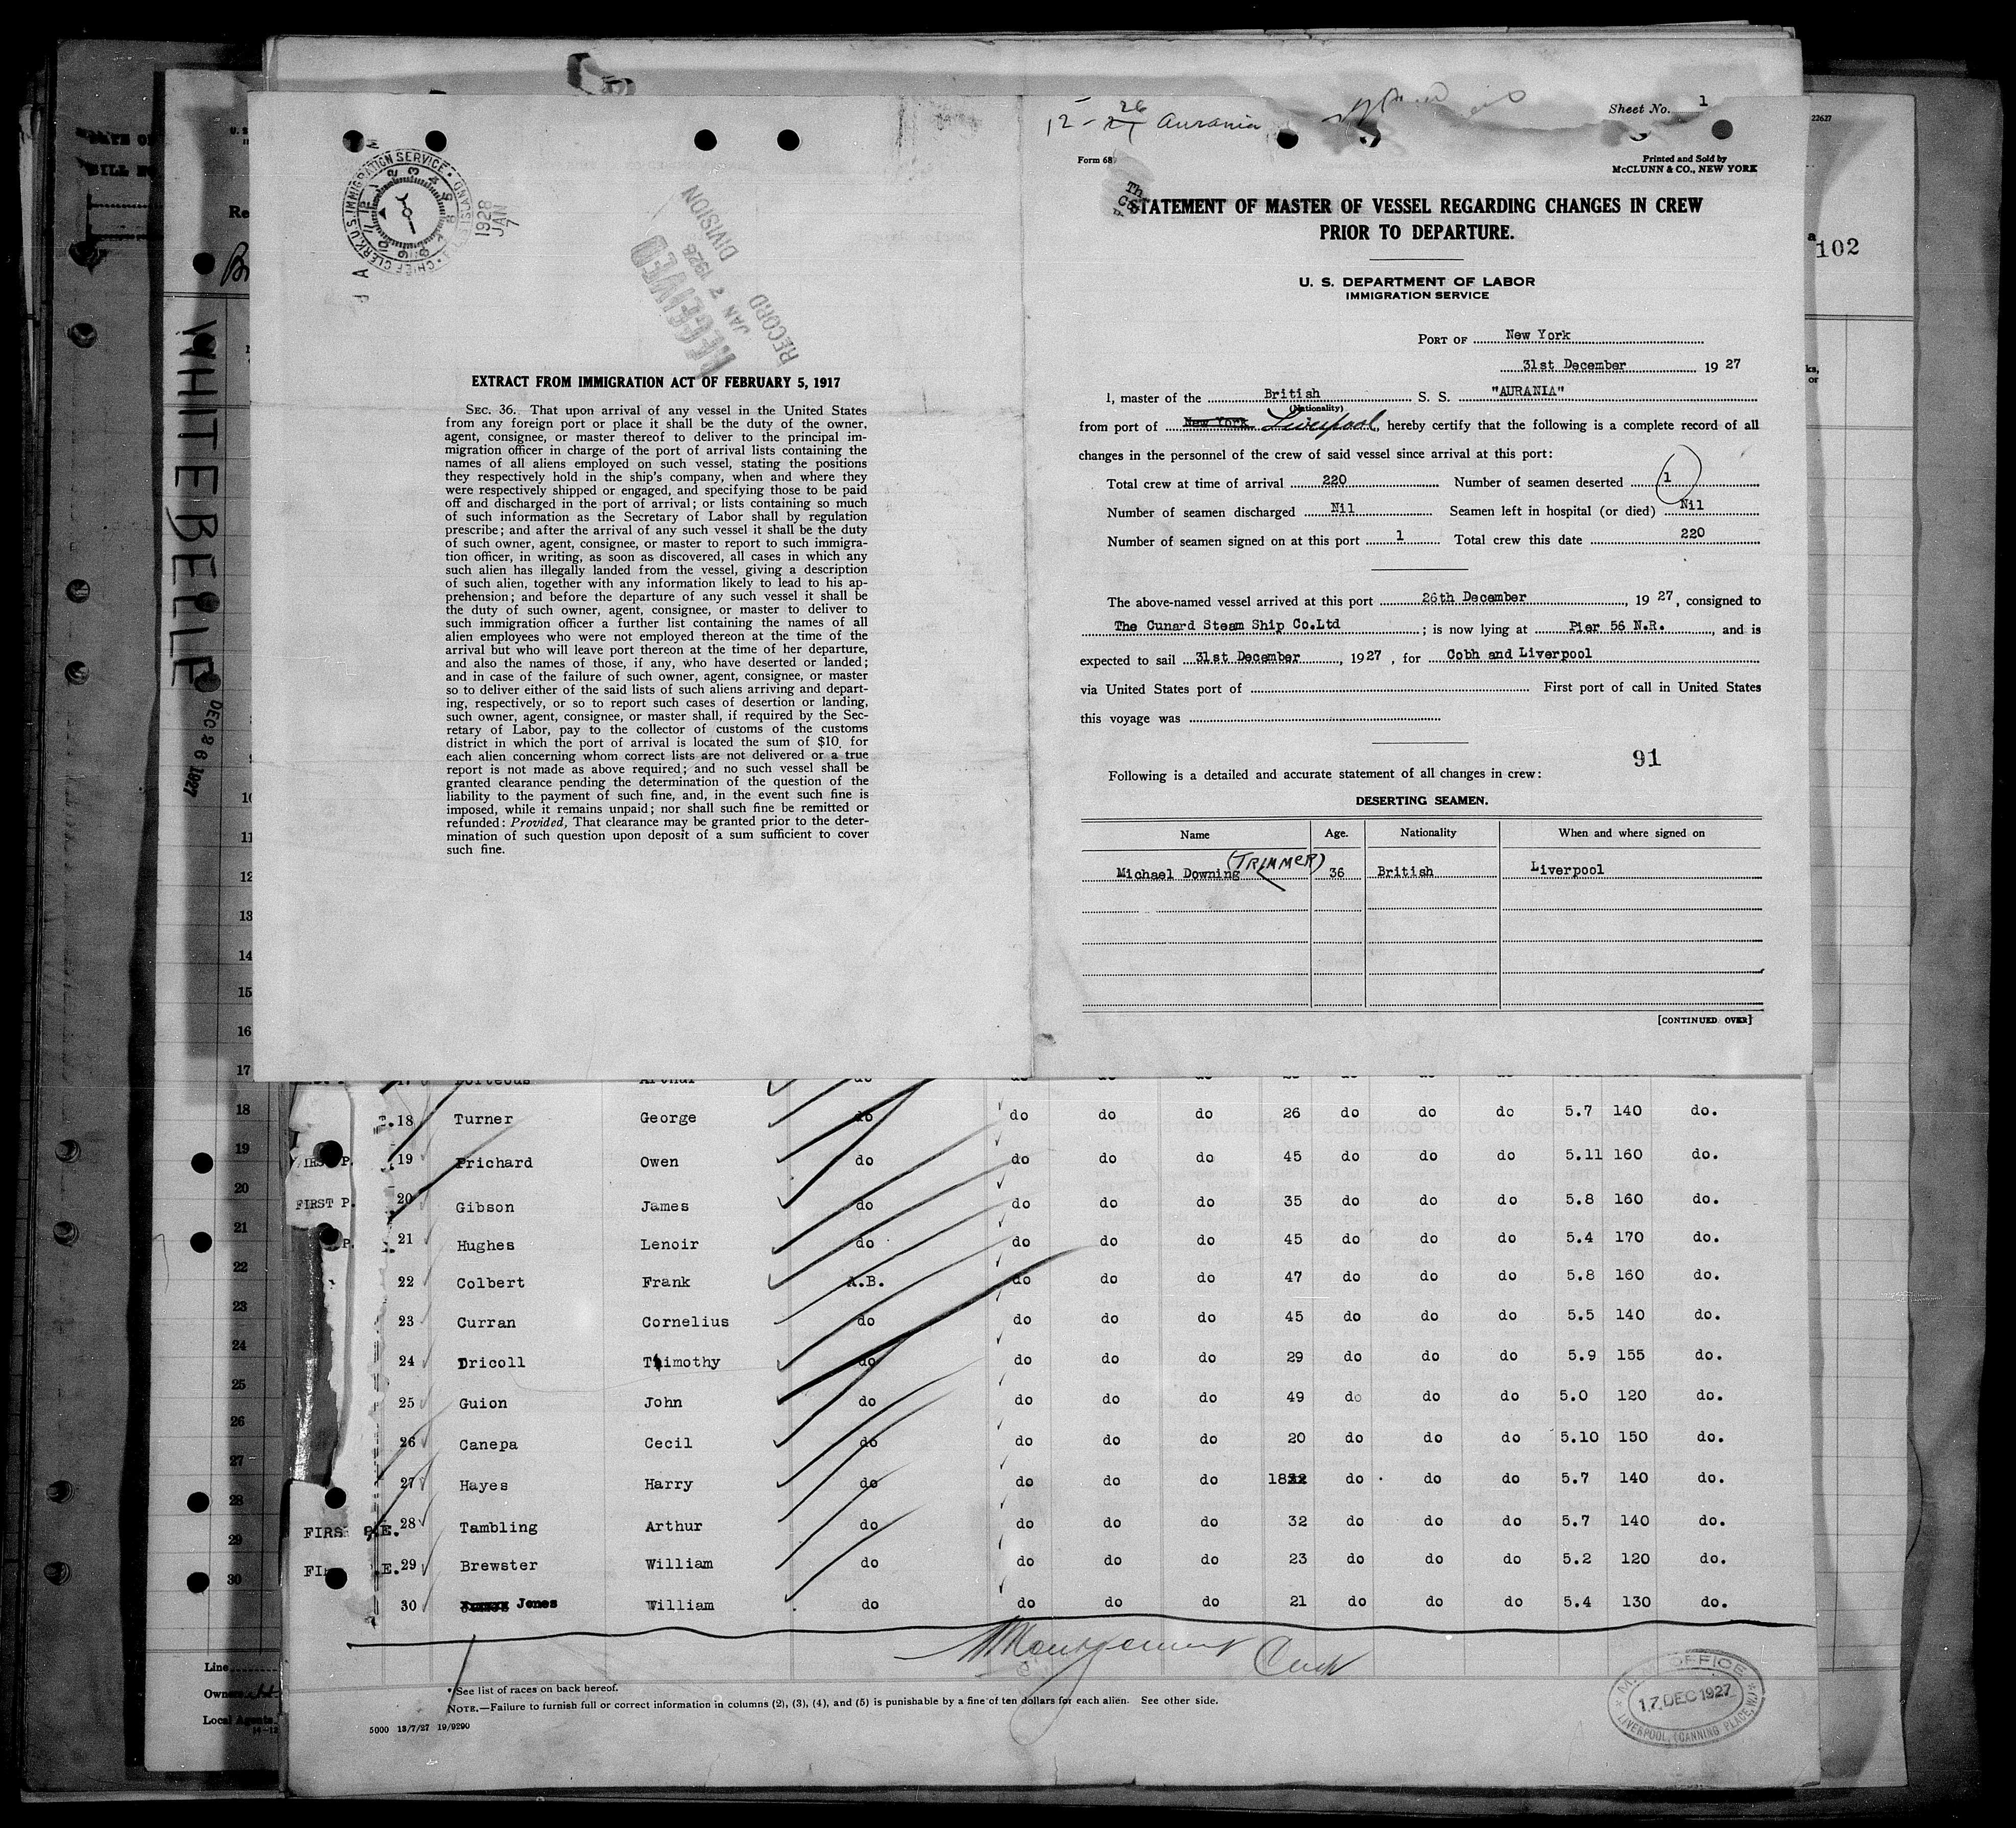 12-26 Aurania
Sheet No. 1
22627
Form 68
Printed and Sold by
McCLUNN & CO., NEW YORK
STATEMENT OF MASTER OF VESSEL REGARDING CHANGES IN CREW
PRIOR TO DEPARTURE.
U. S. DEPARTMENT OF LABOR
IMMIGRATION SERVICE
PORT OF New York
31st December 1927
I, master of the British S. S. "AURANIA"
(Nationality)
from port of New York Liverpool, hereby certify that the following is a complete record of all
changes in the personnel of the crew of said vessel since arrival at this port:
Total crew at time of arrival 220 Number of seamen deserted 1
Number of seamen discharged Nil Seamen left in hospital (or died) Nil
Number of seamen signed on at this port 1 Total crew this date 220
The above-named vessel arrived at this port 26th December, 1927, consigned to
The Cunard Steam Ship Co.Ltd ; is now lying at Pier 56 N.R., and is
expected to sail 31st December, 1927, for Cobh and Liverpool
via United States port of First port of call in United States
this voyage was
91
Following is a detailed and accurate statement of all changes in crew:
DESERTING SEAMEN.
Name Age. Nationality When and where signed on
Michael Downing (TRIMMER) 36 British Liverpool
[CONTINUED OVER]
U.S. IMMIGRATION SERVICE
CHIEF CLERK
1928
JAN 7
RECEIVED
JAN 7 1928
RECORD DIVISION
EXTRACT FROM IMMIGRATION ACT OF FEBRUARY 5, 1917
SEC. 36. That upon arrival of any vessel in the United States
from any foreign port or place it shall be the duty of the owner,
agent, consignee, or master thereof to deliver to the principal im-
migration officer in charge of the port of arrival lists containing the
names of all aliens employed on such vessel, stating the positions
they respectively hold in the ship's company, when and where they
were respectively shipped or engaged, and specifying those to be paid
off and discharged in the port of arrival; or lists containing so much
of such information as the Secretary of Labor shall by regulation
prescribe; and after the arrival of any such vessel it shall be the duty
of such owner, agent, consignee, or master to report to such immigra-
tion officer, in writing, as soon as discovered, all cases in which any
such alien has illegally landed from the vessel, giving a description
of such alien, together with any information likely to lead to his ap-
prehension; and before the departure of any such vessel it shall be
the duty of such owner, agent, consignee, or master to deliver to
such immigration officer a further list containing the names of all
alien employees who were not employed thereon at the time of the
arrival but who will leave port thereon at the time of her departure,
and also the names of those, if any, who have deserted or landed;
and in case of the failure of such owner, agent, consignee, or master
so to deliver either of the said lists of such aliens arriving and depart-
ing, respectively, or so to report such cases of desertion or landing,
such owner, agent, consignee, or master shall, if required by the Sec-
retary of Labor, pay to the collector of customs of the customs
district in which the port of arrival is located the sum of $10 for
each alien concerning whom correct lists are not delivered or a true
report is not made as above required; and no such vessel shall be
granted clearance pending the determination of the question of the
liability to the payment of such fine, and, in the event such fine is
imposed, while it remains unpaid; nor shall such fine be remitted or
refunded: Provided, That clearance may be granted prior to the deter-
mination of such question upon deposit of a sum sufficient to cover
such fine.
102
WHITEBELLE
DEC 26 1927
10
11
12
13
14
15
16
17
18
19
20
21
22
23
24
25
26
27
28
29
30
18 Turner George do do do do 26 do do do 5.7 140 do.
19 Prichard Owen do do do do 45 do do do 5.11 160 do.
FIRST P. 20 Gibson James do do do do 35 do do do 5.8 160 do.
P. 21 Hughes Lenoir do do do do 45 do do do 5.4 170 do.
22 Colbert Frank A.B. do do do 47 do do do 5.8 160 do.
23 Curran Cornelius do do do do 45 do do do 5.5 140 do.
24 Dricoll Timothy do do do do 29 do do do 5.9 155 do.
25 Guion John do do do do 49 do do do 5.0 120 do.
26 Canepa Cecil do do do do 20 do do do 5.10 150 do.
27 Hayes Harry do do do do 18 do do do 5.7 140 do.
28 Tambling Arthur do do do do 32 do do do 5.7 140 do.
E. 29 Brewster William do do do do 23 do do do 5.2 120 do.
30 Jones William do do do do 21 do do do 5.4 130 do.
* See list of races on back hereof.
NOTE.—Failure to furnish full or correct information in columns (2), (3), (4), and (5) is punishable by a fine of ten dollars for each alien. See other side.
5000 13/7/27 19/9290
Line
Owners
Local Agents
M.M. OFFICE
17 DEC 1927
LIVERPOOL, (CANNING PLACE, W)